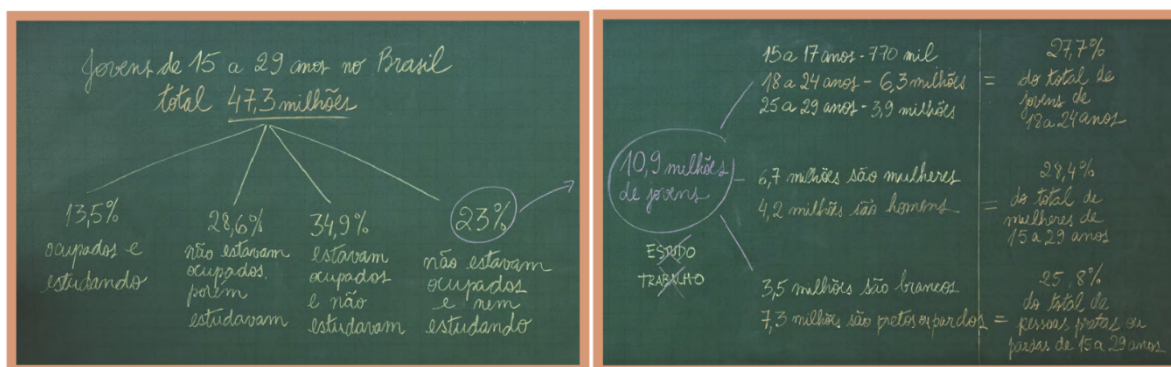 Jovens de 15 a 29 anos no Brasil
total 47,3 milhões
13,5%
ocupados e
estudando
28,6%
não estavam
ocupados,
porém
estudavam
34,9%
estavam
ocupados
e não
estudavam
23%
não estavam
ocupados
e nem
estudando
10,9 milhões
de jovens
ESTUDO
TRABALHO
15 a 17 anos - 770 mil
18 a 24 anos - 6,3 milhões =
25 a 29 anos - 3,9 milhões
27,7%
do total de
jovens de
18 a 24 anos
6,7 milhões são mulheres
4,2 milhões são homens =
28,4%
do total de
mulheres de
15 a 29 anos
3,5 milhões são brancos
7,3 milhões são pretos ou pardos =
25,8%
do total de
pessoas pretas ou
pardas de 15 a 29 anos